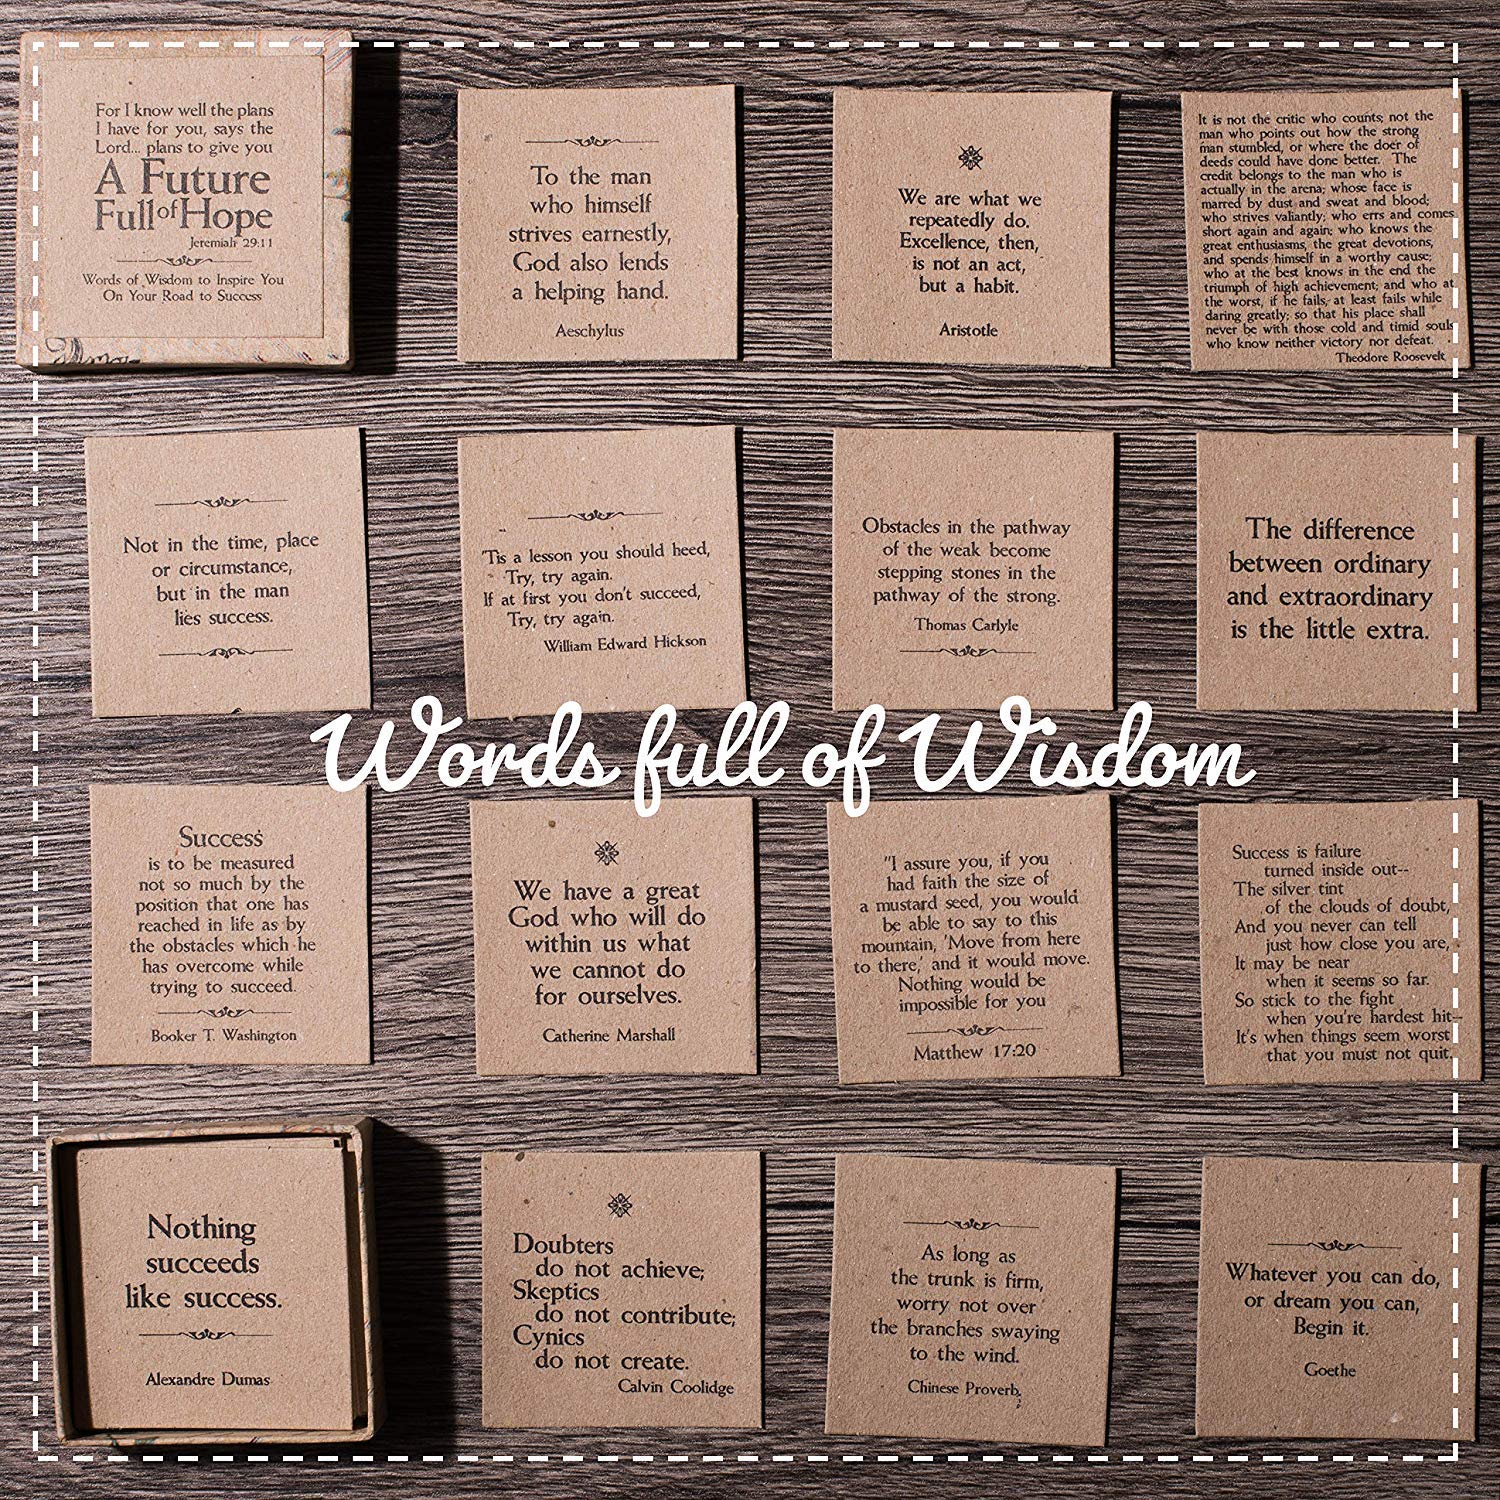 For I know well the plans
I have for you, says the
Lord... plans to give you
A Future
Full of Hope
Jeremiah 29:11
Words of Wisdom to Inspire You
On Your Road to Success
To the man
who himself
strives earnestly,
God also lends
a helping hand.
Aeschylus
We are what we
repeatedly do.
Excellence, then,
is not an act,
but a habit.
Aristotle
It is not the critic who counts; not the
man who points out how the strong
man stumbled, or where the doer of
deeds could have done better. The
credit belongs to the man who is
actually in the arena; whose face is
marred by dust and sweat and blood;
who strives valiantly; who errs and comes
short again and again; who knows the
great enthusiasms, the great devotions,
and spends himself in a worthy cause;
who at the best knows in the end the
triumph of high achievement; and who at
the worst, if he fails, at least fails while
daring greatly; so that his place shall
never be with those cold and timid souls
who know neither victory nor defeat.
Theodore Roosevelt
Not in the time, place
or circumstance,
but in the man
lies success.
'Tis a lesson you should heed,
Try, try again.
If at first you don't succeed,
Try, try again.
William Edward Hickson
Obstacles in the pathway
of the weak become
stepping stones in the
pathway of the strong.
Thomas Carlyle
The difference
between ordinary
and extraordinary
is the little extra.
Words full of Wisdom
Success
is to be measured
not so much by the
position that one has
reached in life as by
the obstacles which he
has overcome while
trying to succeed.
Booker T. Washington
We have a great
God who will do
within us what
we cannot do
for ourselves.
Catherine Marshall
"I assure you, if you
had faith the size of
a mustard seed, you would
be able to say to this
mountain, 'Move from here
to there,' and it would move.
Nothing would be
impossible for you
Matthew 17:20
Success is failure
turned inside out--
The silver tint
of the clouds of doubt,
And you never can tell
just how close you are,
It may be near
when it seems so far.
So stick to the fight
when you're hardest hit--
It's when things seem worst
that you must not quit.
Nothing
succeeds
like success.
Alexandre Dumas
Doubters
do not achieve;
Skeptics
do not contribute;
Cynics
do not create.
Calvin Coolidge
As long as
the trunk is firm,
worry not over
the branches swaying
to the wind.
Chinese Proverb
Whatever you can do,
or dream you can,
Begin it.
Goethe